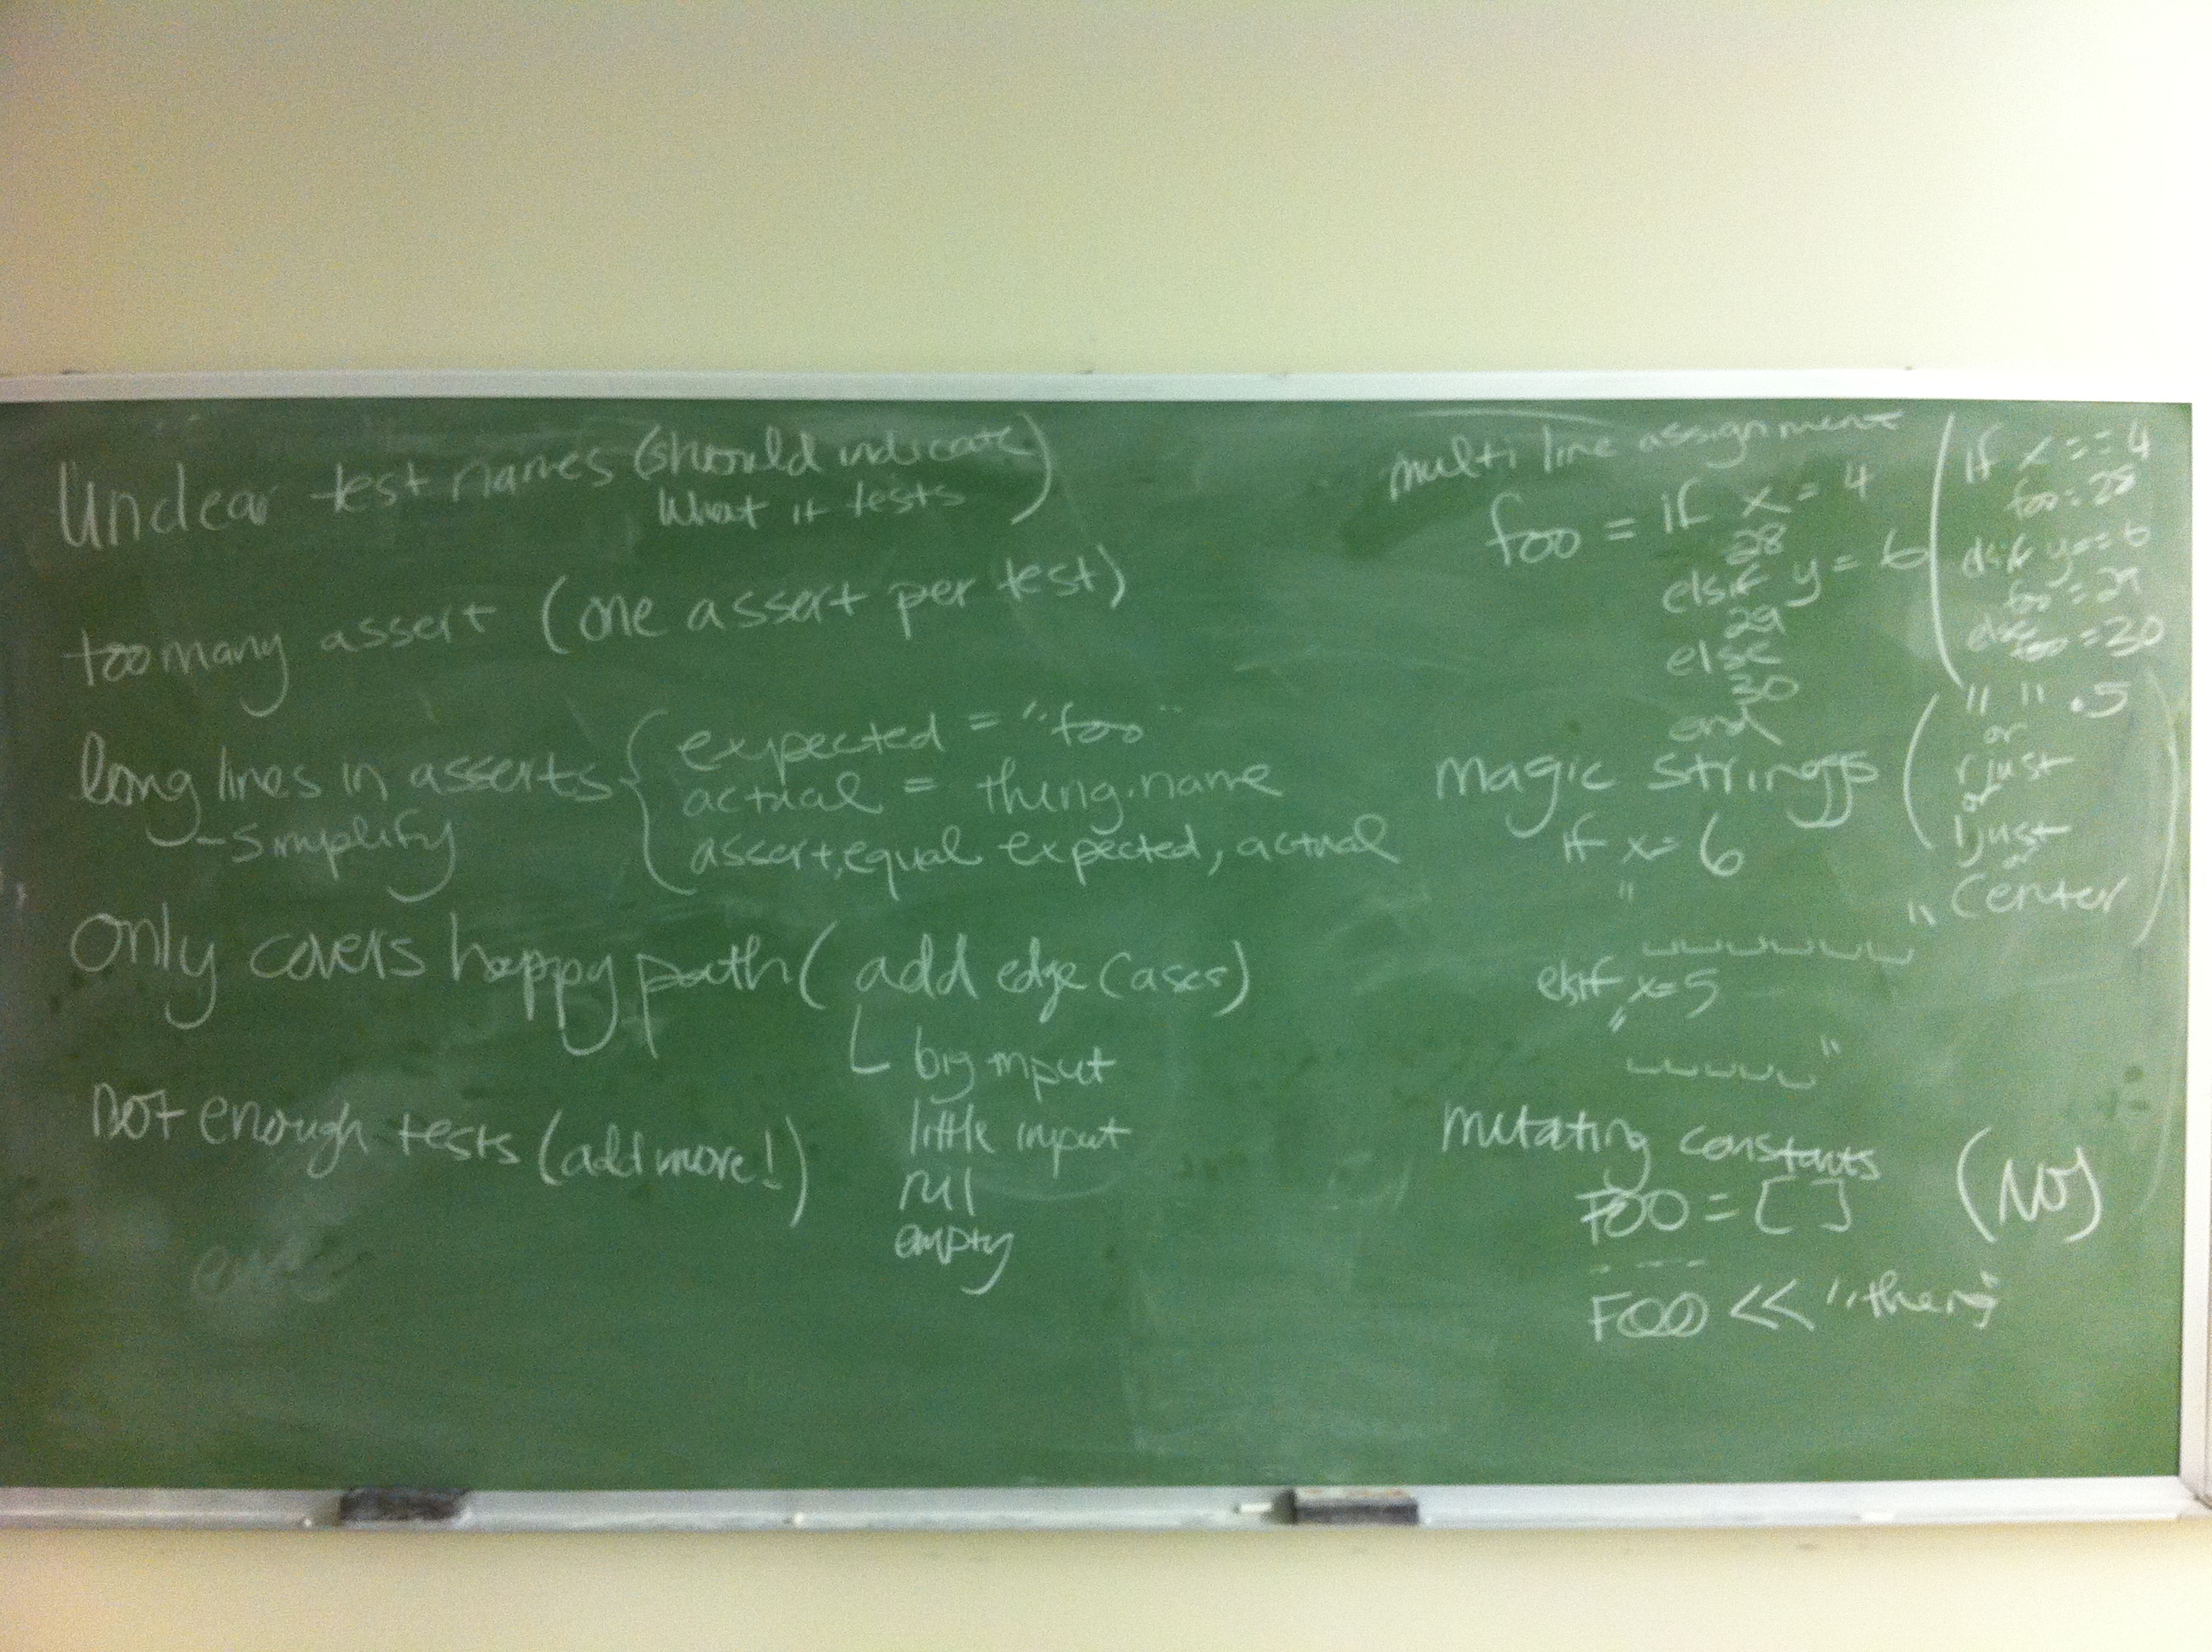 Unclear test names (should indicate
What it tests)
too many assert (one assert per test)
long lines in asserts
- simplify
{ expected = "foo"
actual = thing.name
assert_equal expected, actual
Only covers happy path ( add edge cases)
big input
little input
nil
empty
not enough tests (add more!)
multi line assignment
foo = if x = 4
28
elsif y = 6
29
else
30
end
( if x == 4
foo = 28
elsif y == 6
foo = 29
else
foo = 30
magic strings
if x = 6
" "
elsif x = 5
" "
( " " . 5
or
rjust
or
ljust
or
center )
mutating constants
FOO = [ ]
- - - -
FOO << "thing"
(NO)